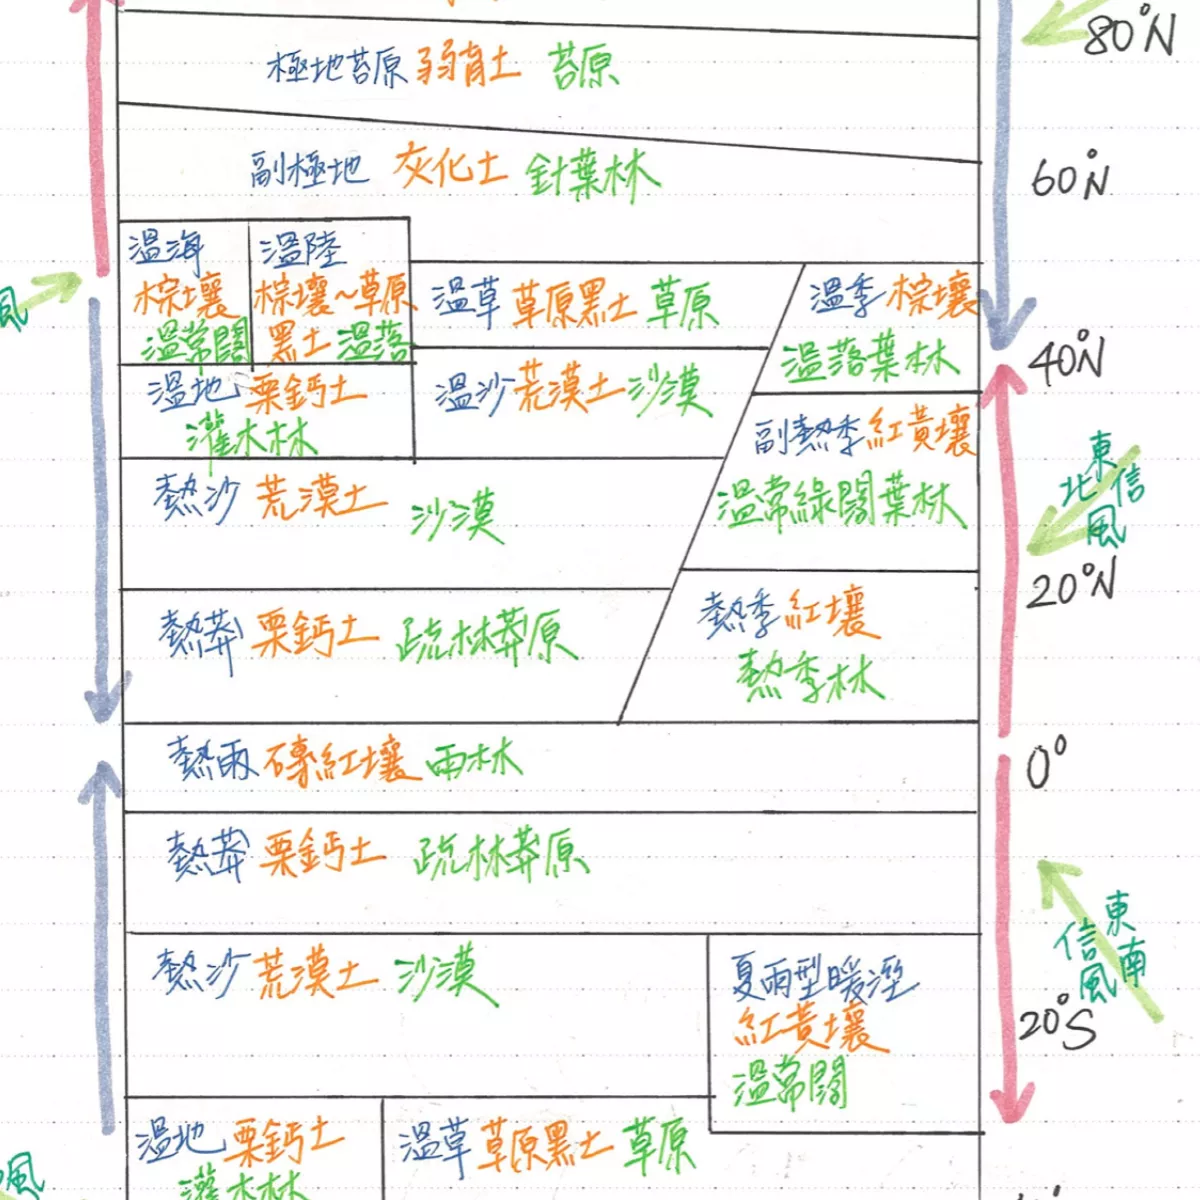 80°N
極地苔原 弱育土 苔原
60°N
副極地 灰化土 針葉林
溫海
棕壤
溫常闊
溫陸
棕壤~草原
黑土 溫落
溫草 草原黑土 草原
溫季 棕壤
溫落葉林
風
40°N
溫地 栗鈣土
灌木林
溫沙 荒漠土 沙漠
副熱季 紅黃壤
溫常綠闊葉林
東北信風
熱沙 荒漠土 沙漠
20°N
熱莽 栗鈣土 疏林莽原
熱季 紅壤
熱季林
熱雨 磚紅壤 雨林
0°
熱莽 栗鈣土 疏林莽原
東南信風
熱沙 荒漠土 沙漠
夏雨型暖溼
紅黃壤
溫常闊
20°S
溫地 栗鈣土
灌木林
溫草 草原黑土 草原
風